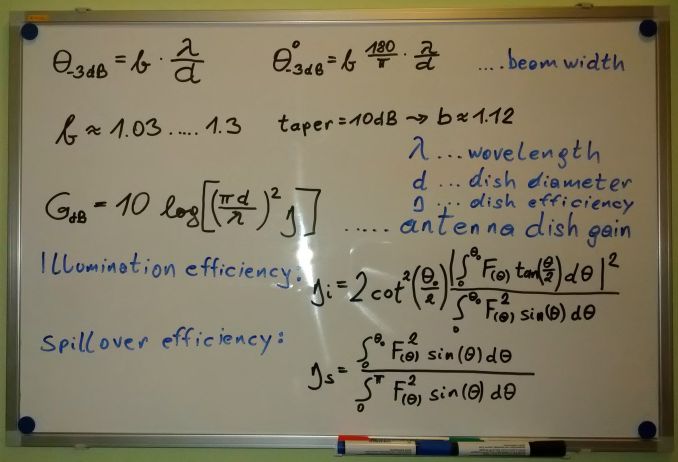 θ-3dB = b · λ/d    θ°-3dB = b 180/π · λ/d    ....beamwidth
b ≈ 1.03 ..... 1.3    taper = 10dB ⇝ b ≈ 1.12
λ ... wavelength
d ... dish diameter
η ... dish efficiency
GdB = 10 log[(πd/λ)² η]
..... antenna dish gain
Illumination efficiency:
ηi = 2 cot²(θ₀/2) |∫₀^θ₀ F(θ) tan(θ/2) dθ|² / ∫₀^θ₀ F²(θ) sin(θ) dθ
Spillover efficiency:
ηs = ∫₀^θ₀ F²(θ) sin(θ) dθ / ∫₀^π F²(θ) sin(θ) dθ